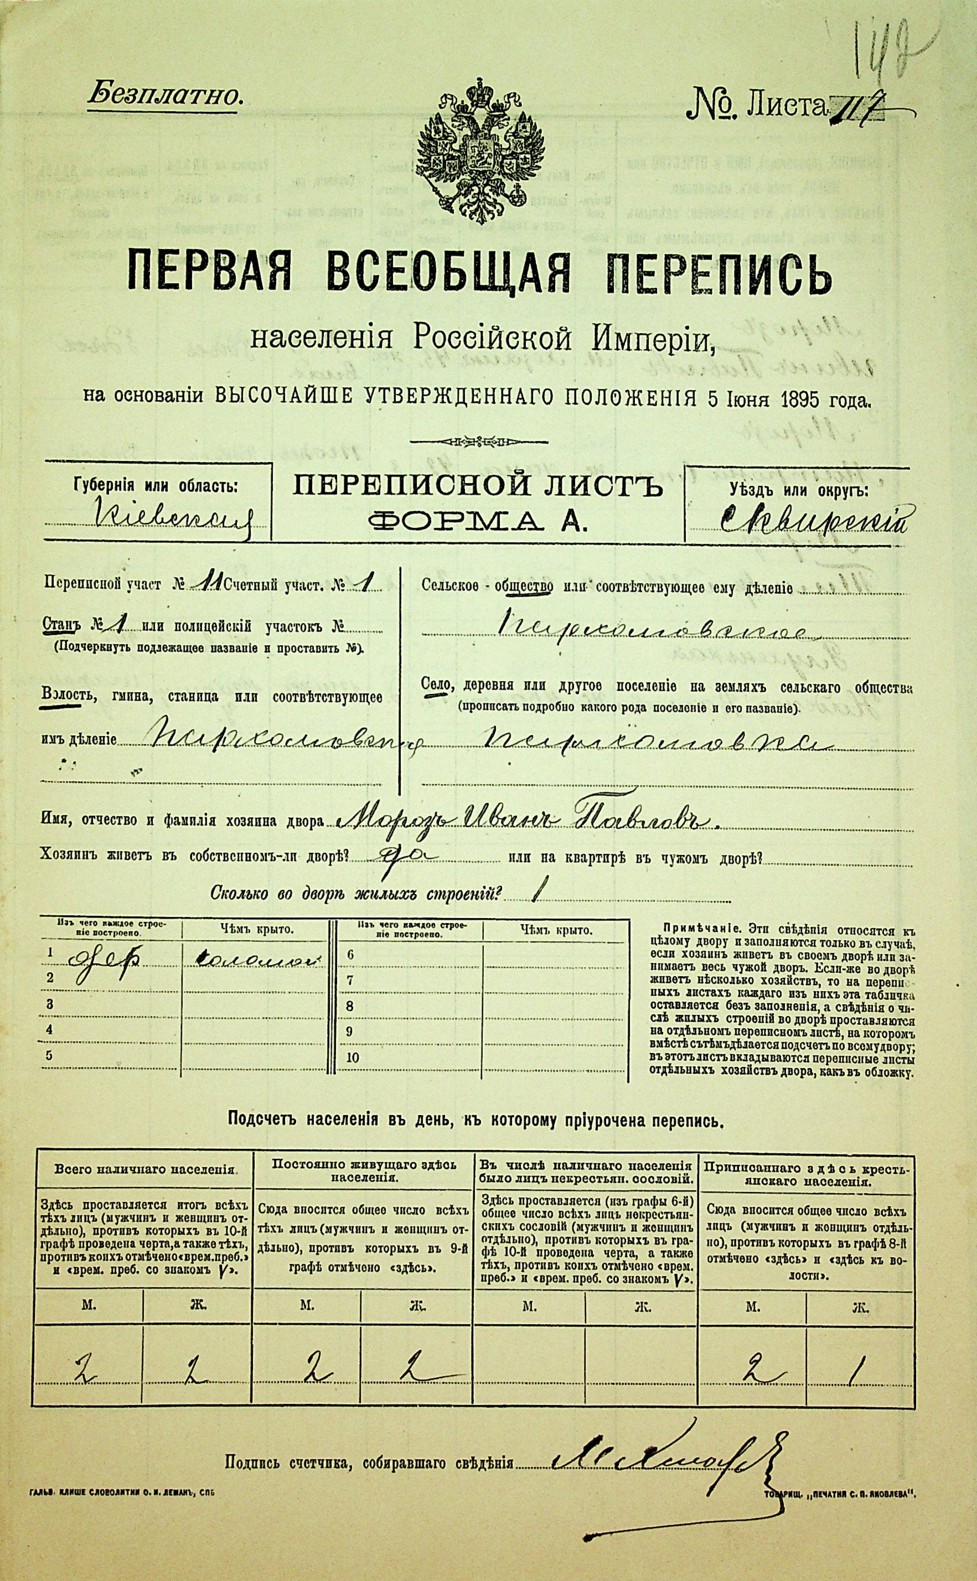 142
Безплатно.
№. Листа 117
ПЕРВАЯ ВСЕОБЩАЯ ПЕРЕПИСЬ
населенія Россійской Имперіи,
на основаніи ВЫСОЧАЙШЕ УТВЕРЖДЕННАГО ПОЛОЖЕНІЯ 5 Іюня 1895 года.
Губернія или область:
Кіевская
ПЕРЕПИСНОЙ ЛИСТЪ
ФОРМА А.
Уѣздъ или округъ:
Сквирскій
Переписной участ № 11 Счетный участ. № 1
Станъ № 1 или полицейскій участокъ №
(Подчеркнуть подлежащее названіе и проставить №).
Волость, гмина, станица или соотвѣтствующее
имъ дѣленіе Пархомовская
Сельское - общество или соотвѣтствующее ему дѣленіе
Пархомовское
Село, деревня или другое поселеніе на земляхъ сельскаго общества
(прописать подробно какого рода поселеніе и его названіе).
Пархомовка
Имя, отчество и фамилія хозяина двора Морозъ Иванъ Павловъ.
Хозяинъ живетъ въ собственномъ-ли дворѣ? да или на квартирѣ въ чужомъ дворѣ?
Сколько во дворѣ жилыхъ строеній? 1
Изъ чего каждое строе-
ніе построено.
Чѣмъ крыто.
Изъ чего каждое строе-
ніе построено.
Чѣмъ крыто.
1 дер соломой
2
3
4
5
6
7
8
9
10
Примѣчаніе. Эти свѣдѣнія относятся къ
цѣлому двору и заполняются только въ случаѣ,
если хозяинъ живетъ въ своемъ дворѣ или за-
нимаетъ весь чужой дворъ. Если-же во дворѣ
живетъ нѣсколько хозяйствъ, то на перепис-
ныхъ листахъ каждаго изъ нихъ эта табличка
оставляется безъ заполненія, а свѣдѣнія о чи-
слѣ жилыхъ строеній во дворѣ проставляются
на отдѣльномъ переписномъ листѣ, на которомъ
вмѣстѣ съ тѣмъ дѣлается подсчетъ по всему двору;
въ этотъ листъ вкладываются переписные листы
отдѣльныхъ хозяйствъ двора, какъ въ обложку.
Подсчетъ населенія въ день, къ которому пріурочена перепись.
Всего наличнаго населенія.
Здѣсь проставляется итогъ всѣхъ
тѣхъ лицъ (мужчинъ и женщинъ от-
дѣльно), противъ которыхъ въ 10-й
графѣ проведена черта, а также тѣхъ,
противъ коихъ отмѣчено «врем. преб.»
и «врем. преб. со знакомъ V».
Постоянно живущаго здѣсь
населенія.
Сюда вносится общее число всѣхъ
тѣхъ лицъ (мужчинъ и женщинъ от-
дѣльно), противъ которыхъ въ 9-й
графѣ отмѣчено «здѣсь».
Въ числѣ наличнаго населенія
было лицъ некрестьян. сословій.
Здѣсь проставляется (изъ графы 6-й)
общее число всѣхъ лицъ некрестьян-
скихъ сословій (мужчинъ и женщинъ
отдѣльно), противъ которыхъ въ гра-
фѣ 10-й проведена черта, а также
тѣхъ, противъ коихъ отмѣчено «врем.
преб.» и «врем. преб. со знакомъ V».
Приписаннаго здѣсь кресть-
янскаго населенія.
Сюда вносится общее число всѣхъ
лицъ (мужчинъ и женщинъ отдѣль-
но), противъ которыхъ въ графѣ 8-й
отмѣчено «здѣсь» и «здѣсь къ во-
лости».
М. Ж. М. Ж. М. Ж. М. Ж.
2 2 2 2 2 1
Подпись счетчика, собиравшаго свѣдѣнія
ГАЛЬВ. КЛИШЕ СЛОВОЛИТНИ О. И. ЛЕМАНЪ, СПБ
ТОВАРИЩ. „ПЕЧАТНЯ С. П. ЯКОВЛЕВА".